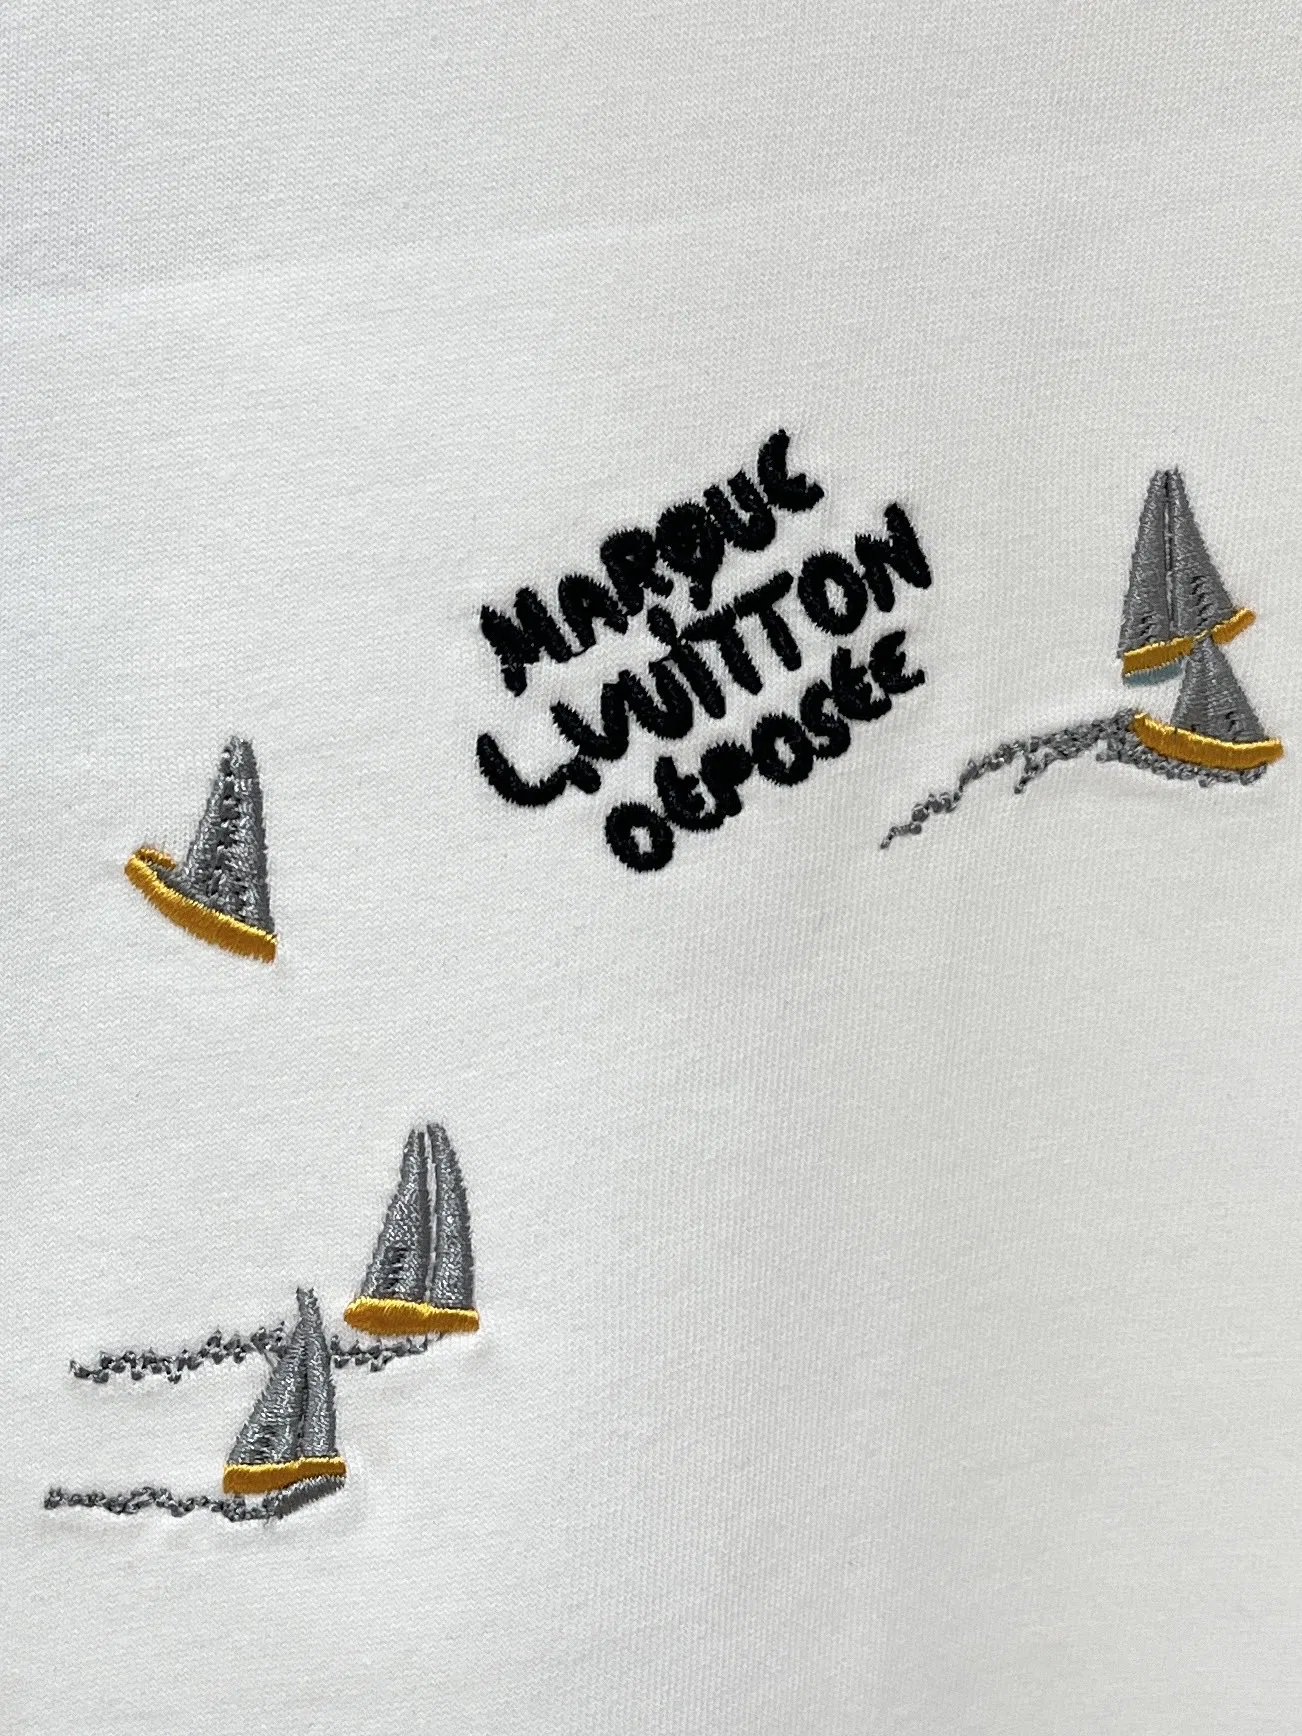 MARQUE
L.VUITTON
Otposée